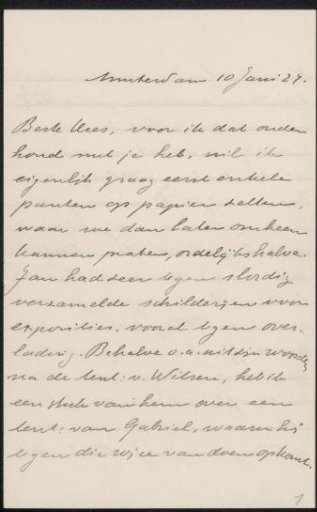 Amsterdam 10 Juni 29.
Beste Kees, voor ik dat onder
houd met je heb, wil ik
eigenlijk graag eerst enkele
punten op papier zetten,
waar we dan later omheen
kunnen praten, ordelijkshalve.
Jan had zeer tegen slordig
verzamelde schilderijen voor
exposities, vooral tegen over
lading. Behalve o.a. uit zijn woorden
na de tent: v. Witsen, heb ik
een stuk van hem over een
tent: van Gabriel, waarin hij
tegen die wijze van doen opkomt.
1